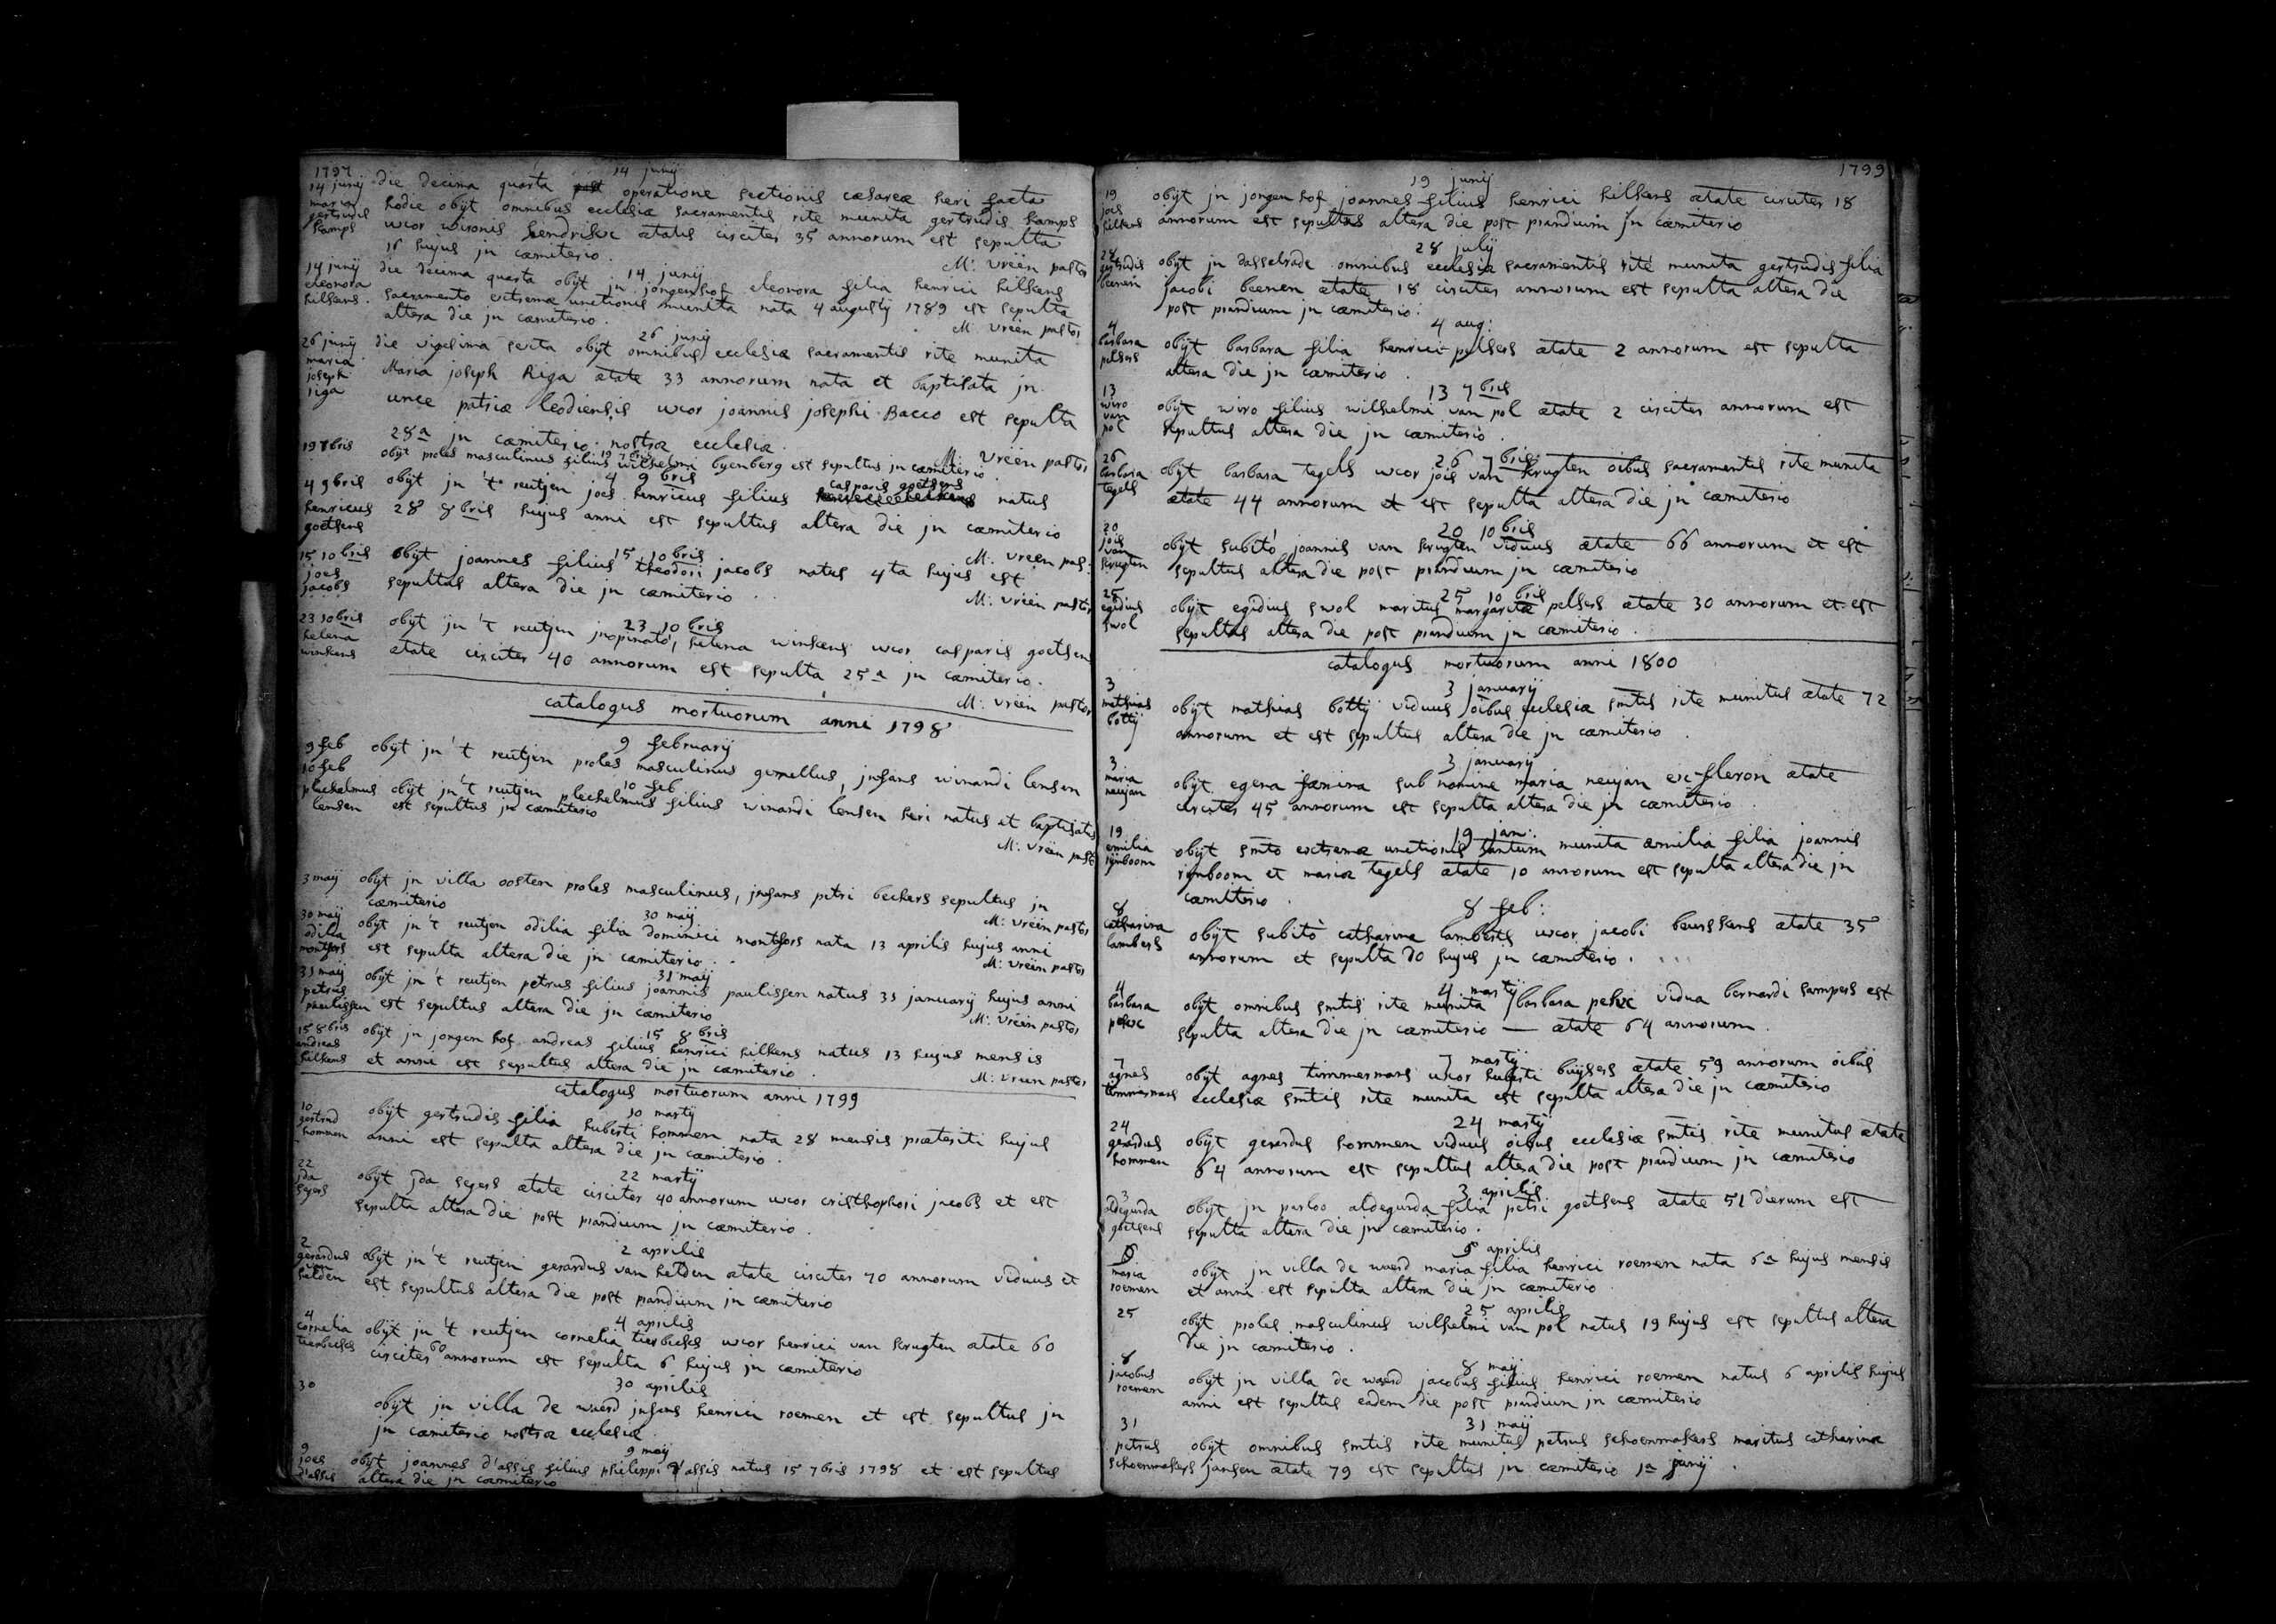 1797
14 junij
14 junij
maria
gertrudis
kamps
die decima quarta post operatione sectioniis cæsareæ heri facta
hodie obijt omnibus ecclesiæ sacramentis rite munita gertrudis kamps
uxor wironis hendrikx ætatis circiter 35 annorum est sepulta
16 hujus jn cæmiterio.
M: Vrëën pastor
14 junij
14 junij
eleonora
hilkens.
die decima quarta obijt jn jongenhof eleonora filia henrici hilkens
sacramento extremæ unctionis munita nata 4 augustij 1789 est sepulta
altera die jn cæmiterio.
M: Vrëën pastor
26 junij
26 junij
maria
joseph
riga
die vigesima sexta obijt omnibus ecclesiæ sacramentis rite munita
Maria joseph Riga ætate 33 annorum nata et baptisata jn
unce patriæ leodiensis uxor joannis josephi Bacco est sepulta
28a jn cæmiterio nostræ ecclesiæ.
M: Vrëën pastor
19 7bris
19 7bris
obijt proles masculinus filius wilhelmi byenberg est sepultus jn cæmiterio.
4 9bris
4 9bris
henricus
goetsens
obijt jn 't reutjen joes henricus filius casparis goetsens natus
28 8bris hujus anni est sepultus altera die jn cæmiterio
M: Vrëën pas:
15 10bris
15 10bris
joes
jacobs
obijt joannes filius theodori jacobs natus 4ta hujus est
sepultus altera die jn cæmiterio.
M: Vrëën pastor
23 10bris
23 10bris
helena
winkens
obijt jn 't reutjen jnopinato, helena winkens uxor casparis goetsens
ætate circiter 40 annorum est sepulta 25a jn cæmiterio.
M: Vrëën pastor
catalogus mortuorum anni 1798
9 feb
9 februarij
obijt jn 't reutjen proles masculinus gemellus, jnfans winandi lensen
10 feb
10 feb
plechelmus
lensen
obijt jn 't reutjen plechelmus filius winandi lensen heri natus et baptisatus
est sepultus jn cæmiterio
M: Vrëën past
3 maij
obijt jn villa oosten proles masculinus, jnfans petri beckers sepultus jn
cæmiterio
M: Vrëën pastor
30 maij
30 maij
odilia
montfors
obijt jn 't reutjen odilia filia dominici montfors nata 13 aprilis hujus anni
est sepulta altera die jn cæmiterio.
M: Vrëën pastor
31 maij
31 maij
petrus
paulissen
obijt jn 't reutjen petrus filius joannis paulissen natus 31 januarij hujus anni
est sepultus altera die jn cæmiterio
M: Vrëën pastor
15 8bris
15 8bris
andreas
hilkens
obijt jn jongen hof andreas filius henrici hilkens natus 13 hujus mensis
et anni est sepultus altera die jn cæmiterio.
M: Vreen pastor
catalogus mortuorum anni 1799
10
10 martij
gertrud
hommen
obijt gertrudis filia huberti hommen nata 28 mensis præteriti hujus
anni est sepulta altera die jn cæmiterio.
22
22 martij
jda
segers
obijt jda segers ætate circiter 40 annorum uxor cristhophori jacobs et est
sepulta altera die post prandium jn cæmiterio.
2
2 aprilis
gerardus
van
helden
obijt jn 't reutjen gerardus van helden ætate circiter 70 annorum viduus et
est sepultus altera die post prandium jn cæmiterio
4
4 aprilis
cornelia
obijt jn 't reutjen cornelia uxor henrici van krugten ætate 60
circiter 60 annorum est sepulta 6 hujus jn cæmiterio
30
30 aprilis
obijt jn villa de waerd jnfans henrici roemen et est sepultus jn
jn cæmiterio nostræ ecclesiæ
9
9 maij
joes
d'assis
obijt joannes d'assis filius philippi d'assis natus 15 7bris 1798 et est sepultus
altera die jn cæmiterio
1799
19
19 junij
joes
hilkens
obijt jn jongen hof joannes filius henrici hilkens ætate circiter 18
annorum est sepultus altera die post prandium jn cæmiterio
28
28 julij
gertrudis
beenen
obijt jn dasselrade omnibus ecclesiæ sacramentis rité munita gertrudis filia
jacobi beenen ætate 18 circiter annorum est sepulta altera die
post prandium jn cæmiterio.
4
4 aug:
barbara
pelsers
obijt barbara filia henrici pelsers ætate 2 annorum est sepulta
altera die jn cæmiterio.
13
13 7bris
wiro
van
pol
obijt wiro filius wilhelmi van pol ætate 2 circiter annorum est
sepultus altera die jn cæmiterio.
26
26 7bris
barbara
tegels
obijt barbara tegels uxor jois van krugten oibus sacramentis rite munita
ætate 44 annorum et est sepulta altera die jn cæmiterio
20
20 10bris
jois
van
krugten
obijt subitò joannis van krugten viduus ætate 66 annorum et est
sepultus altera die post prandium jn cæmiterio
25
25 10bris
egidius
swol
obijt egidius swol maritus margaritæ pelsers ætate 30 annorum et est
sepultus altera die post prandium jn cæmiterio.
catalogus mortuorum anni 1800
3
3 januarij
mathias
bottij
obijt mathias bottij viduus oibus ecclesiæ smtis rite munitus ætate 72
annorum et est sepultus altera die jn cæmiterio.
3
3 januarij
maria
neujan
obijt egena fæmina sub nomine maria neujan ex fleron ætate
circiter 45 annorum est sepulta altera die jn cæmiterio.
19
19 jan:
emilia
rijnboom
obijt smto extremæ unctionis tantum munita æmilia filia joannis
rijnboom et mariæ tegels ætate 10 annorum est sepulta altera die jn
cæmiterio.
8
8 feb:
catharina
lambers
obijt subitò catharina lamberts uxor jacobi beursskens ætate 35
annorum et sepulta 10 hujus jn cæmiterio.
4
4 martij
barbara
pekx
obijt omnibus smtis rite munita barbara pekx vidua bernardi sampers est
sepulta altera die jn cæmiterio — ætate 64 annorum.
7
7 martij
agnes
timmermans
obijt agnes timmermans uxor huberti buijsers ætate 59 annorum oibus
ecclesiæ smtis rite munita est sepulta altera die jn cæmiterio
24
24 martij
gerardus
hommen
obijt gerardus hommen viduus oibus ecclesiæ smtis rite munitus ætate
64 annorum est sepultus altera die post prandium jn cæmiterio
3
3 aprilis
aldegunda
goetsens
obijt jn parloo aldegunda filia petri goetsens ætate 51 dierum est
sepulta altera die jn cæmiterio.
aprilis
maria
roemen
obijt jn villa de waerd maria filia henrici roemen nata 6a hujus mensis
et anni est sepulta altera die jn cæmiterio
25
25 aprilis
obijt proles masculinus wilhelmi van pol natus 19 hujus est sepultus altera
die jn cæmiterio.
8
8 maij
jacobus
roemen
obijt jn villa de waerd jacobus filius henrici roemen natus 6 aprilis hujus
anni est sepultus eadem die post prandium jn cæmiterio
31
31 maij
petrus
schoenmakers
obijt omnibus smtis rite munitus petrus schoenmakers maritus catharinæ
jansen ætate 79 est sepultus jn cæmiterio 1a junij.